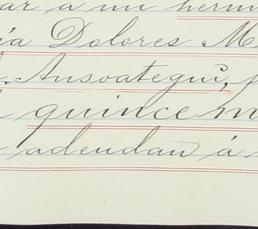 ar a mi herm
ía Dolores M
Ansoategui,
quince m
adendan á